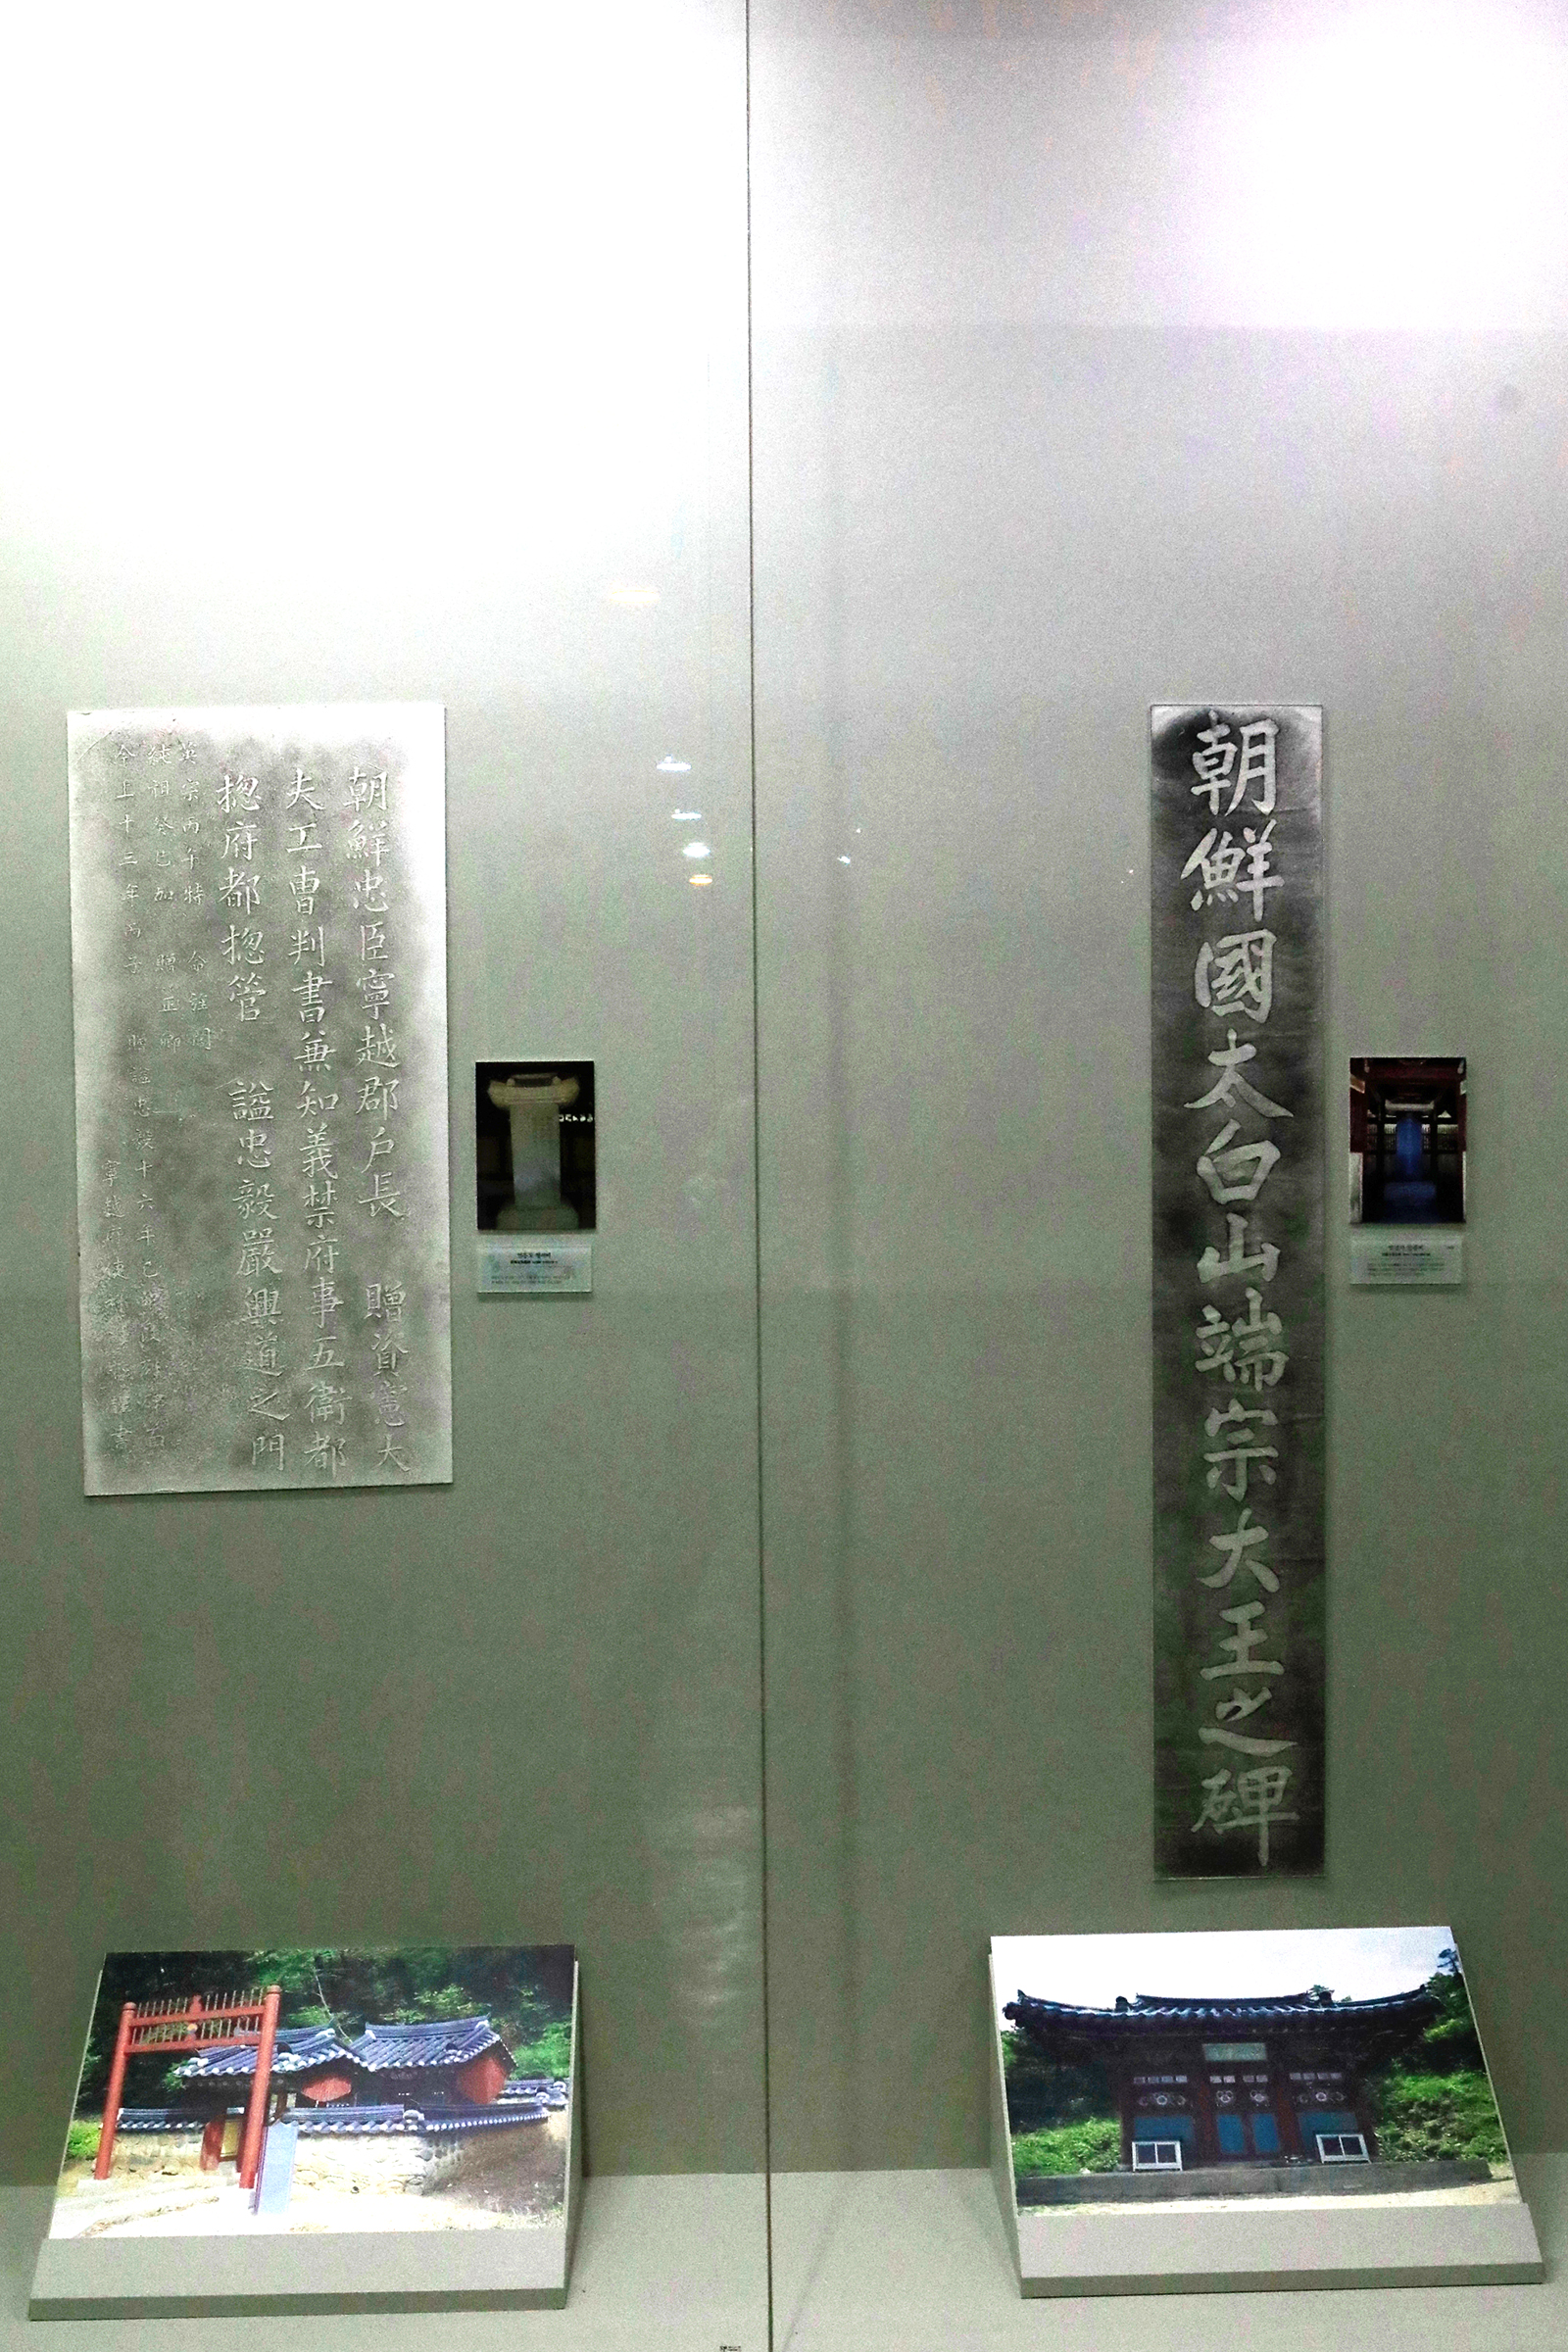 朝鮮國太白山端宗大王之碑
朝鮮忠臣寧越郡戶長 贈資憲大
夫工曹判書兼知義禁府事五衛都
揔府都揔管 諡忠毅嚴興道之門
英宗丙午特 命旌閭
純祖癸巳加 贈亞卿
今上十三年丙子 贈諡忠毅十六年己卯
寧越府使 謹書